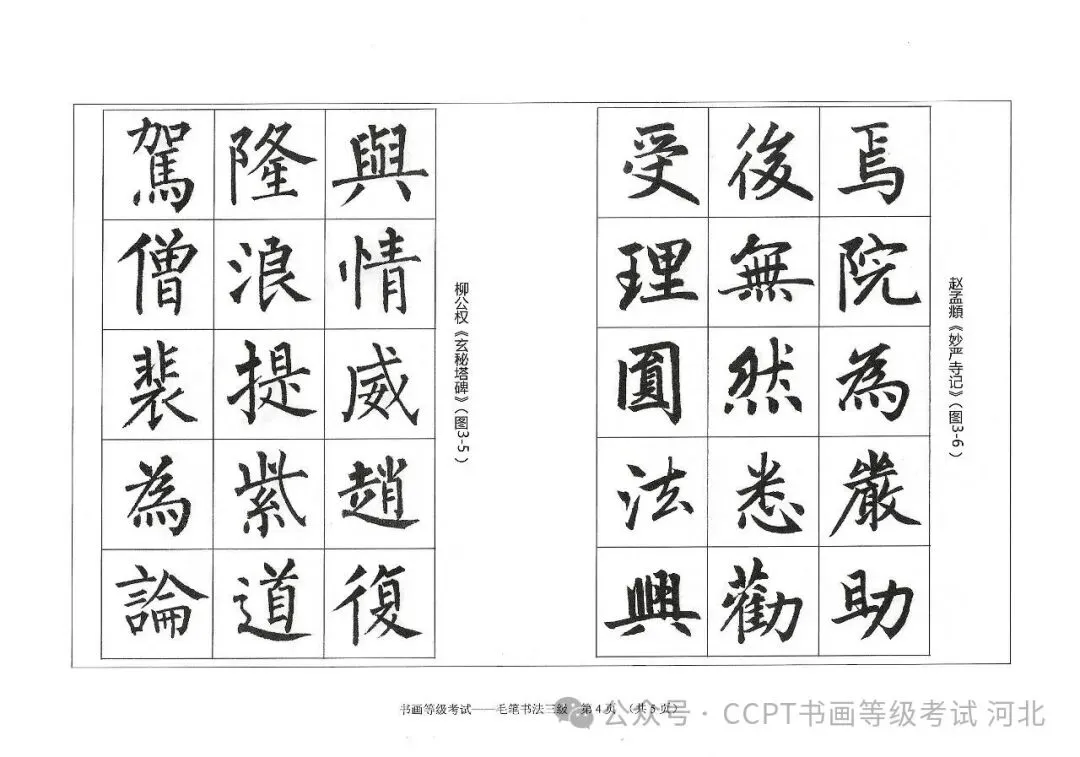 柳公权《玄秘塔碑》（图3-5）
與情威趙復
隆浪提紫道
駕僧裴為論
赵孟頫《妙严寺记》（图3-6）
焉院為嚴助
後無然悉勸
受理圓法興
书画等级考试——毛笔书法三级 第4页 （共5页）
公众号 · CCPT书画等级考试 河北